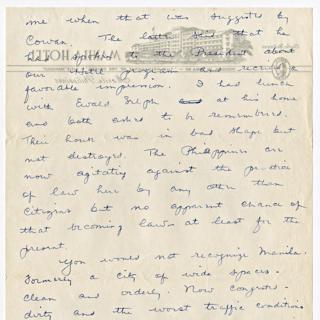 me when that was suggested by
Cowan. The latter said that he
had spoken to the President about
our little program and received a
favorable impression. I had lunch
with Ewald Selph at his home
and both asked to be remembered.
Their house was in bad shape but
not destroyed. The Philippines are
now agitating against the practice
of law here by any other than
Citizens but no apparent chance of
that becoming law at least for the
present.
You would not recognize Manila.
Formerly a city of wide spaces-
clean and orderly. Now congested-
dirty and the worst traffic conditions
MANILA HOTEL